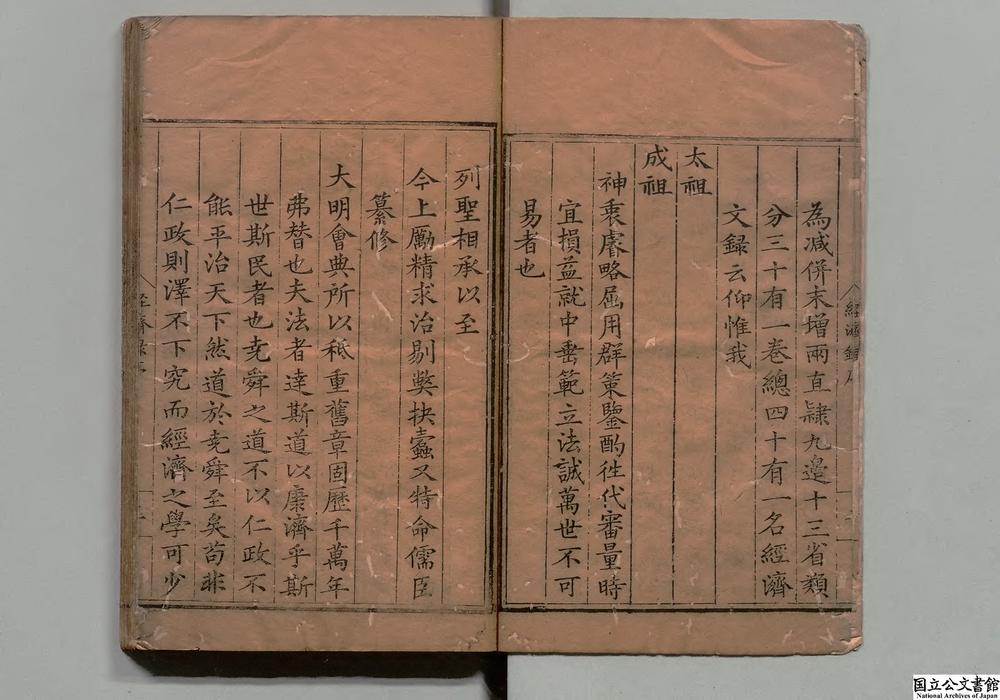 為减併末增兩直隷九邉十三省類
分三十有一卷總四十有一名經濟
文録云仰惟我
太祖
成祖
神衷睿略屈用群策鑒酌徃代審量時
宜損益就中垂範立法誠萬世不可
易者也
列聖相承以至
今上勵精求治剔獘抉蠹又特命儒臣
纂修
大明會典所以秪重舊章固歷千萬年
弗替也夫法者達斯道以康濟乎斯
世斯民者也尭舜之道不以仁政不
能平治天下然道於尭舜至矣苟非
仁政則澤不下究而經濟之學可少
國立公文書館
National Archives of Japan